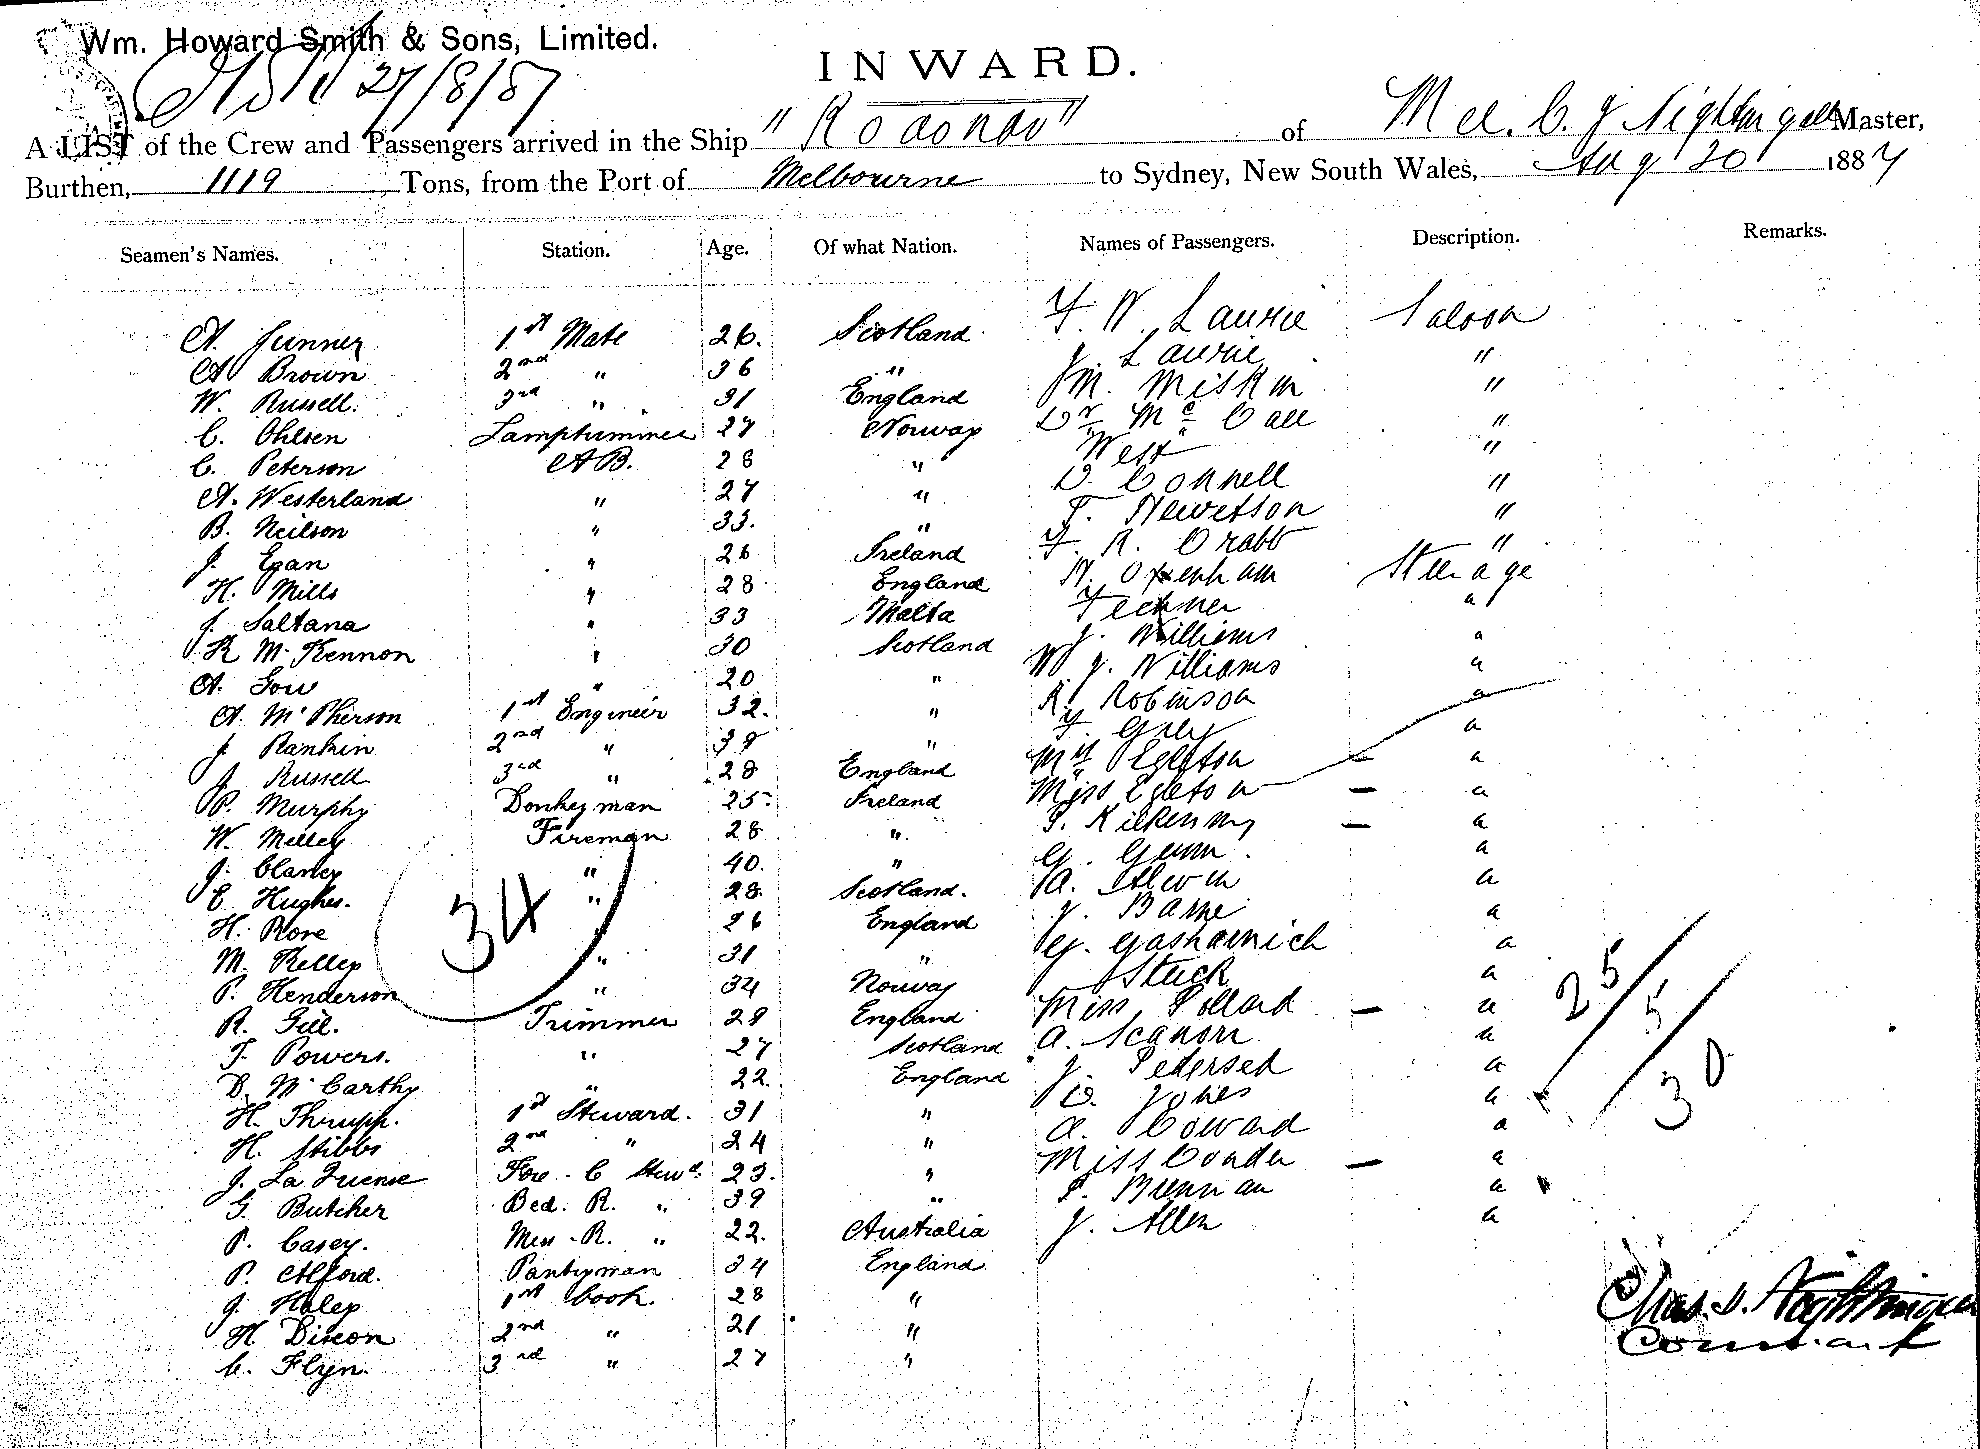 Wm. Howard Smith & Sons, Limited.
27/8/87
INWARD.
A LIST of the Crew and Passengers arrived in the Ship of Mel. C. J Nightingale Master,
Burthen, 1119 Tons, from the Port of Melbourne to Sydney, New South Wales, Aug 20 1887
Seamen's Names. Station. Age. Of what Nation. Names of Passengers. Description. Remarks.
A. Gunner 1st Mate 26. Scotland F. W. Laurie Saloon
A Brown 2nd " 36 " J. Laurie "
W. Russell. 3rd " 31 England M. Miskin "
C. Ohlsen Lamptrimmer 27 Norway Dr McCall "
C. Peterson A B. 28 " West "
A. Westerland " 27 " D. Connell "
B. Neilson " 33. " T. Hewetson "
J. Egan " 26 Ireland F. R. Crabb "
H. Mills " 28 England Oxenham Steerage
J. Saltana " 33 Malta "
K McKennon " 30 Scotland J. Williams "
A. Gow " 20 " W. J. Williams "
A. McPherson 1st Engineer 32. " R. Robinson "
J. Rankin 2nd " 39 " F. Grey "
J. Russell 3rd " 28 England Mrs Egleton "
P. Murphy Donkeyman 25 Ireland Miss Egleton "
W. Fireman 28 " Kilkenny "
J. Clancy " 40. " G. Gunn. "
E. Hughes. " 28 Scotland. A. "
H. " 26 England J. "
M. Kelley " 31 " G. "
P. Henderson " 34 Norway Stuck "
R. Gill. Trimmer 28 England Miss Pollard "
T. Powers. " 27 Scotland A. Scanon "
D. McCarthy " 22. England J. Pedersed "
H. Thrupp. 1st Steward. 31 " D. Jones "
H. Stibbs 2nd " 24 " A. Coward "
J. La Fore. C Stewd. 23. " Miss "
G. Butcher Bed. R. " 39 " Brennan "
P. Casey. Mess. R. " 22. Australia J. Allen "
P. Alford. Pantryman 34 England
J. Haley 1st Cook. 28 "
H Dixon 2nd " 21 "
C. Flyn. 3rd " 27 "
34
25
5
30
Chas. J. Nightingale